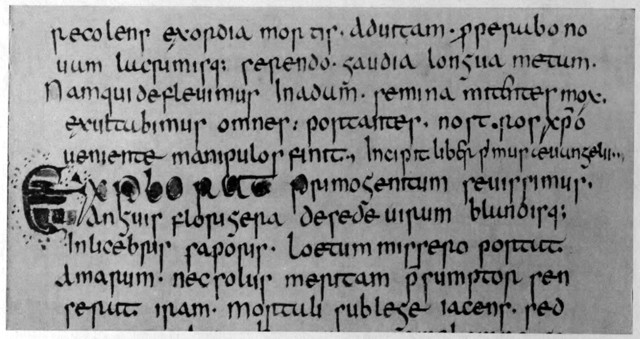 recolens exordia mortis. aduitam. ꝓperabo no
uam lacrimisq; serendo. gaudia longa metam.
Nam qui defleuimus Inadam̄. semina mittentes mox.
exultabimus omnes; portantes. nostros xp̄o
ueniente manipulos finit., Incipit liber pͥmus euangelii...
primogenitum seuissimus.
Anguis florigera desede uirum blandisq;
Inlicebris saporis. Loetum missero portat
Amarum. nec solus meritam p̄sumptor sen
serat iram. mortali sub lege iacens. sed